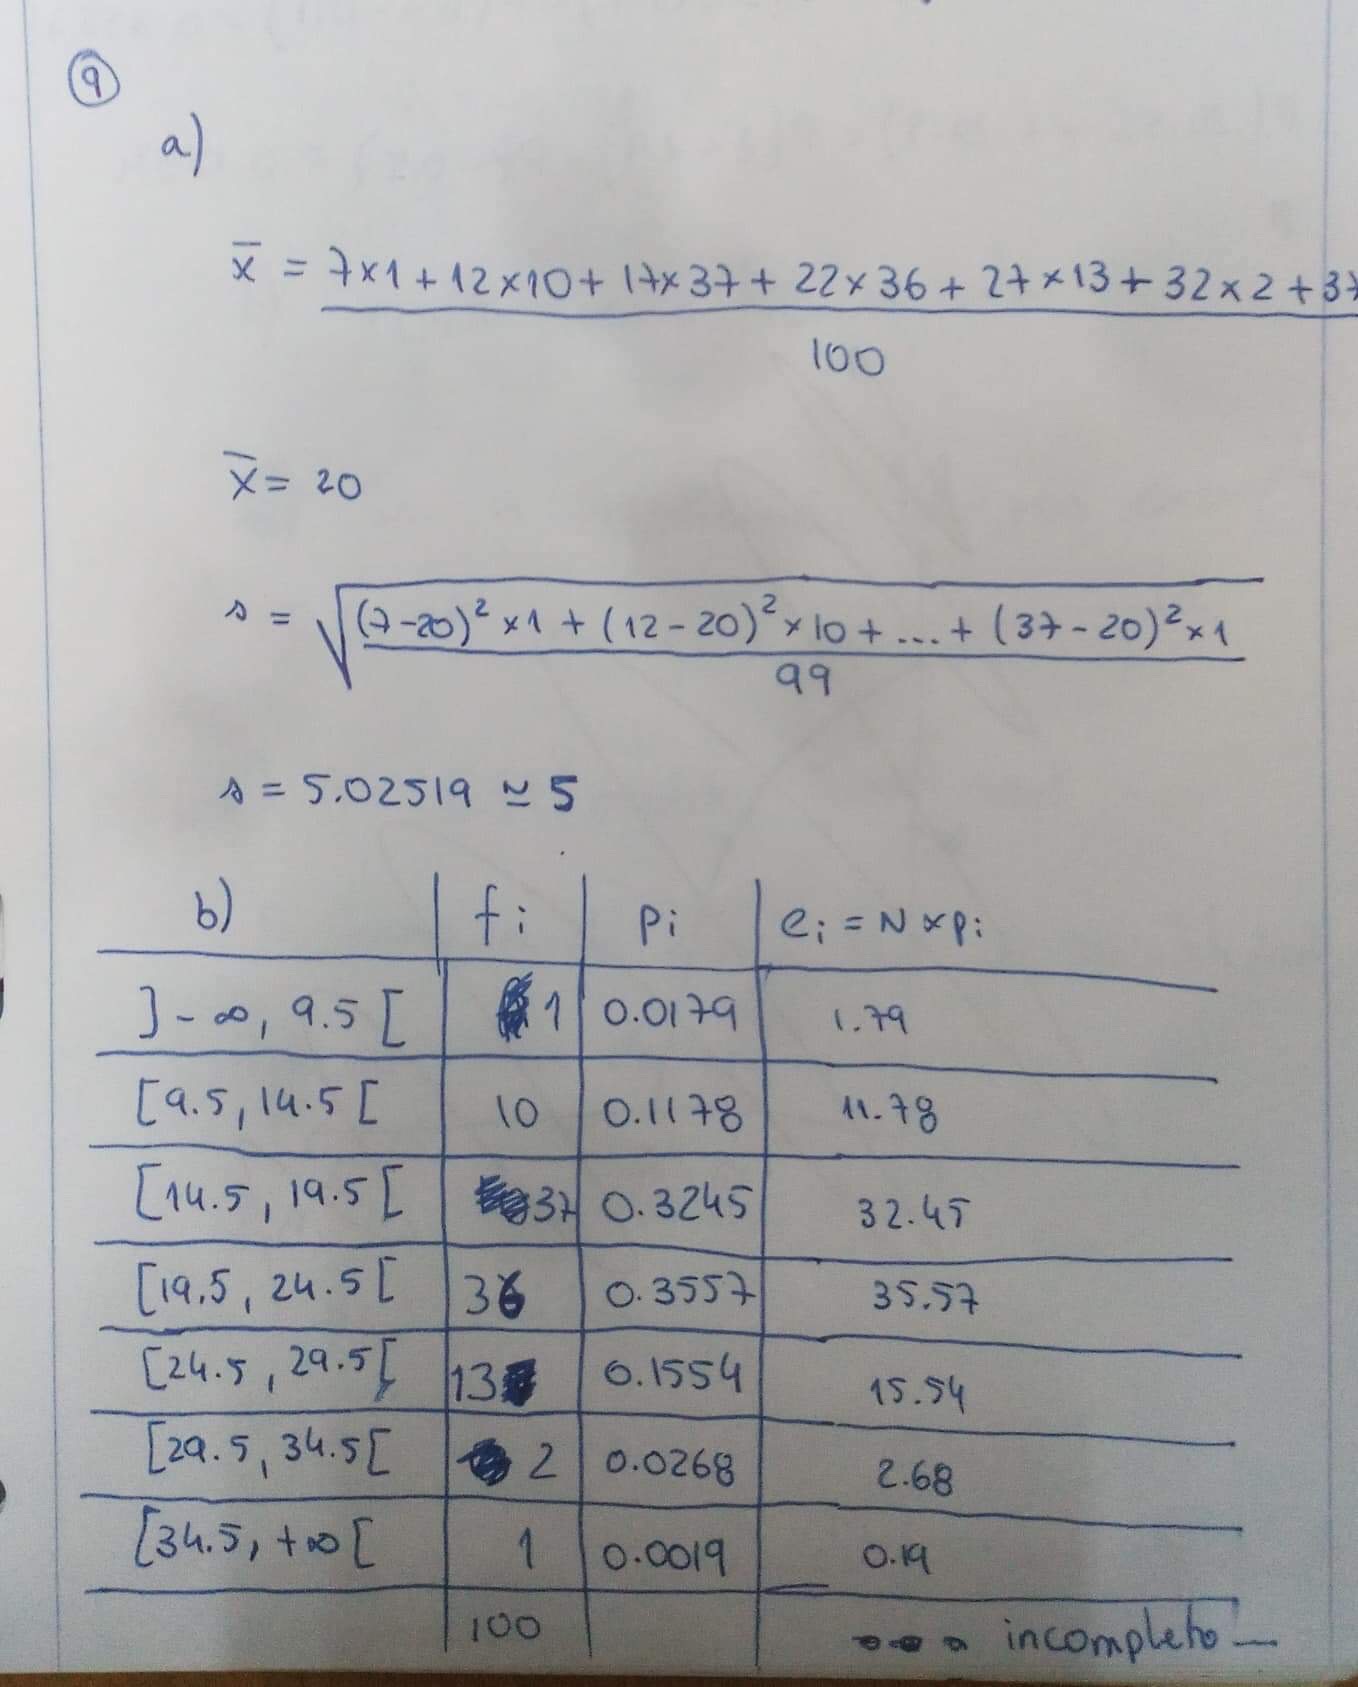 9
a)
x̄ = 7×1 + 12×10 + 17×37 + 22×36 + 27×13 + 32×2 + 37
100
x̄ = 20
s = √((7-20)²×1 + (12-20)²×10 + ... + (37-20)²×1
99
s = 5.02519 ≃ 5
b) fi pi ei = N×pi
]-∞, 9.5[ 1 0.0179 1.79
[9.5, 14.5[ 10 0.1178 11.78
[14.5, 19.5[ 37 0.3245 32.45
[19.5, 24.5[ 36 0.3557 35.57
[24.5, 29.5[ 13 0.1554 15.54
[29.5, 34.5[ 2 0.0268 2.68
[34.5, +∞[ 1 0.0019 0.19
100 ... incompleto